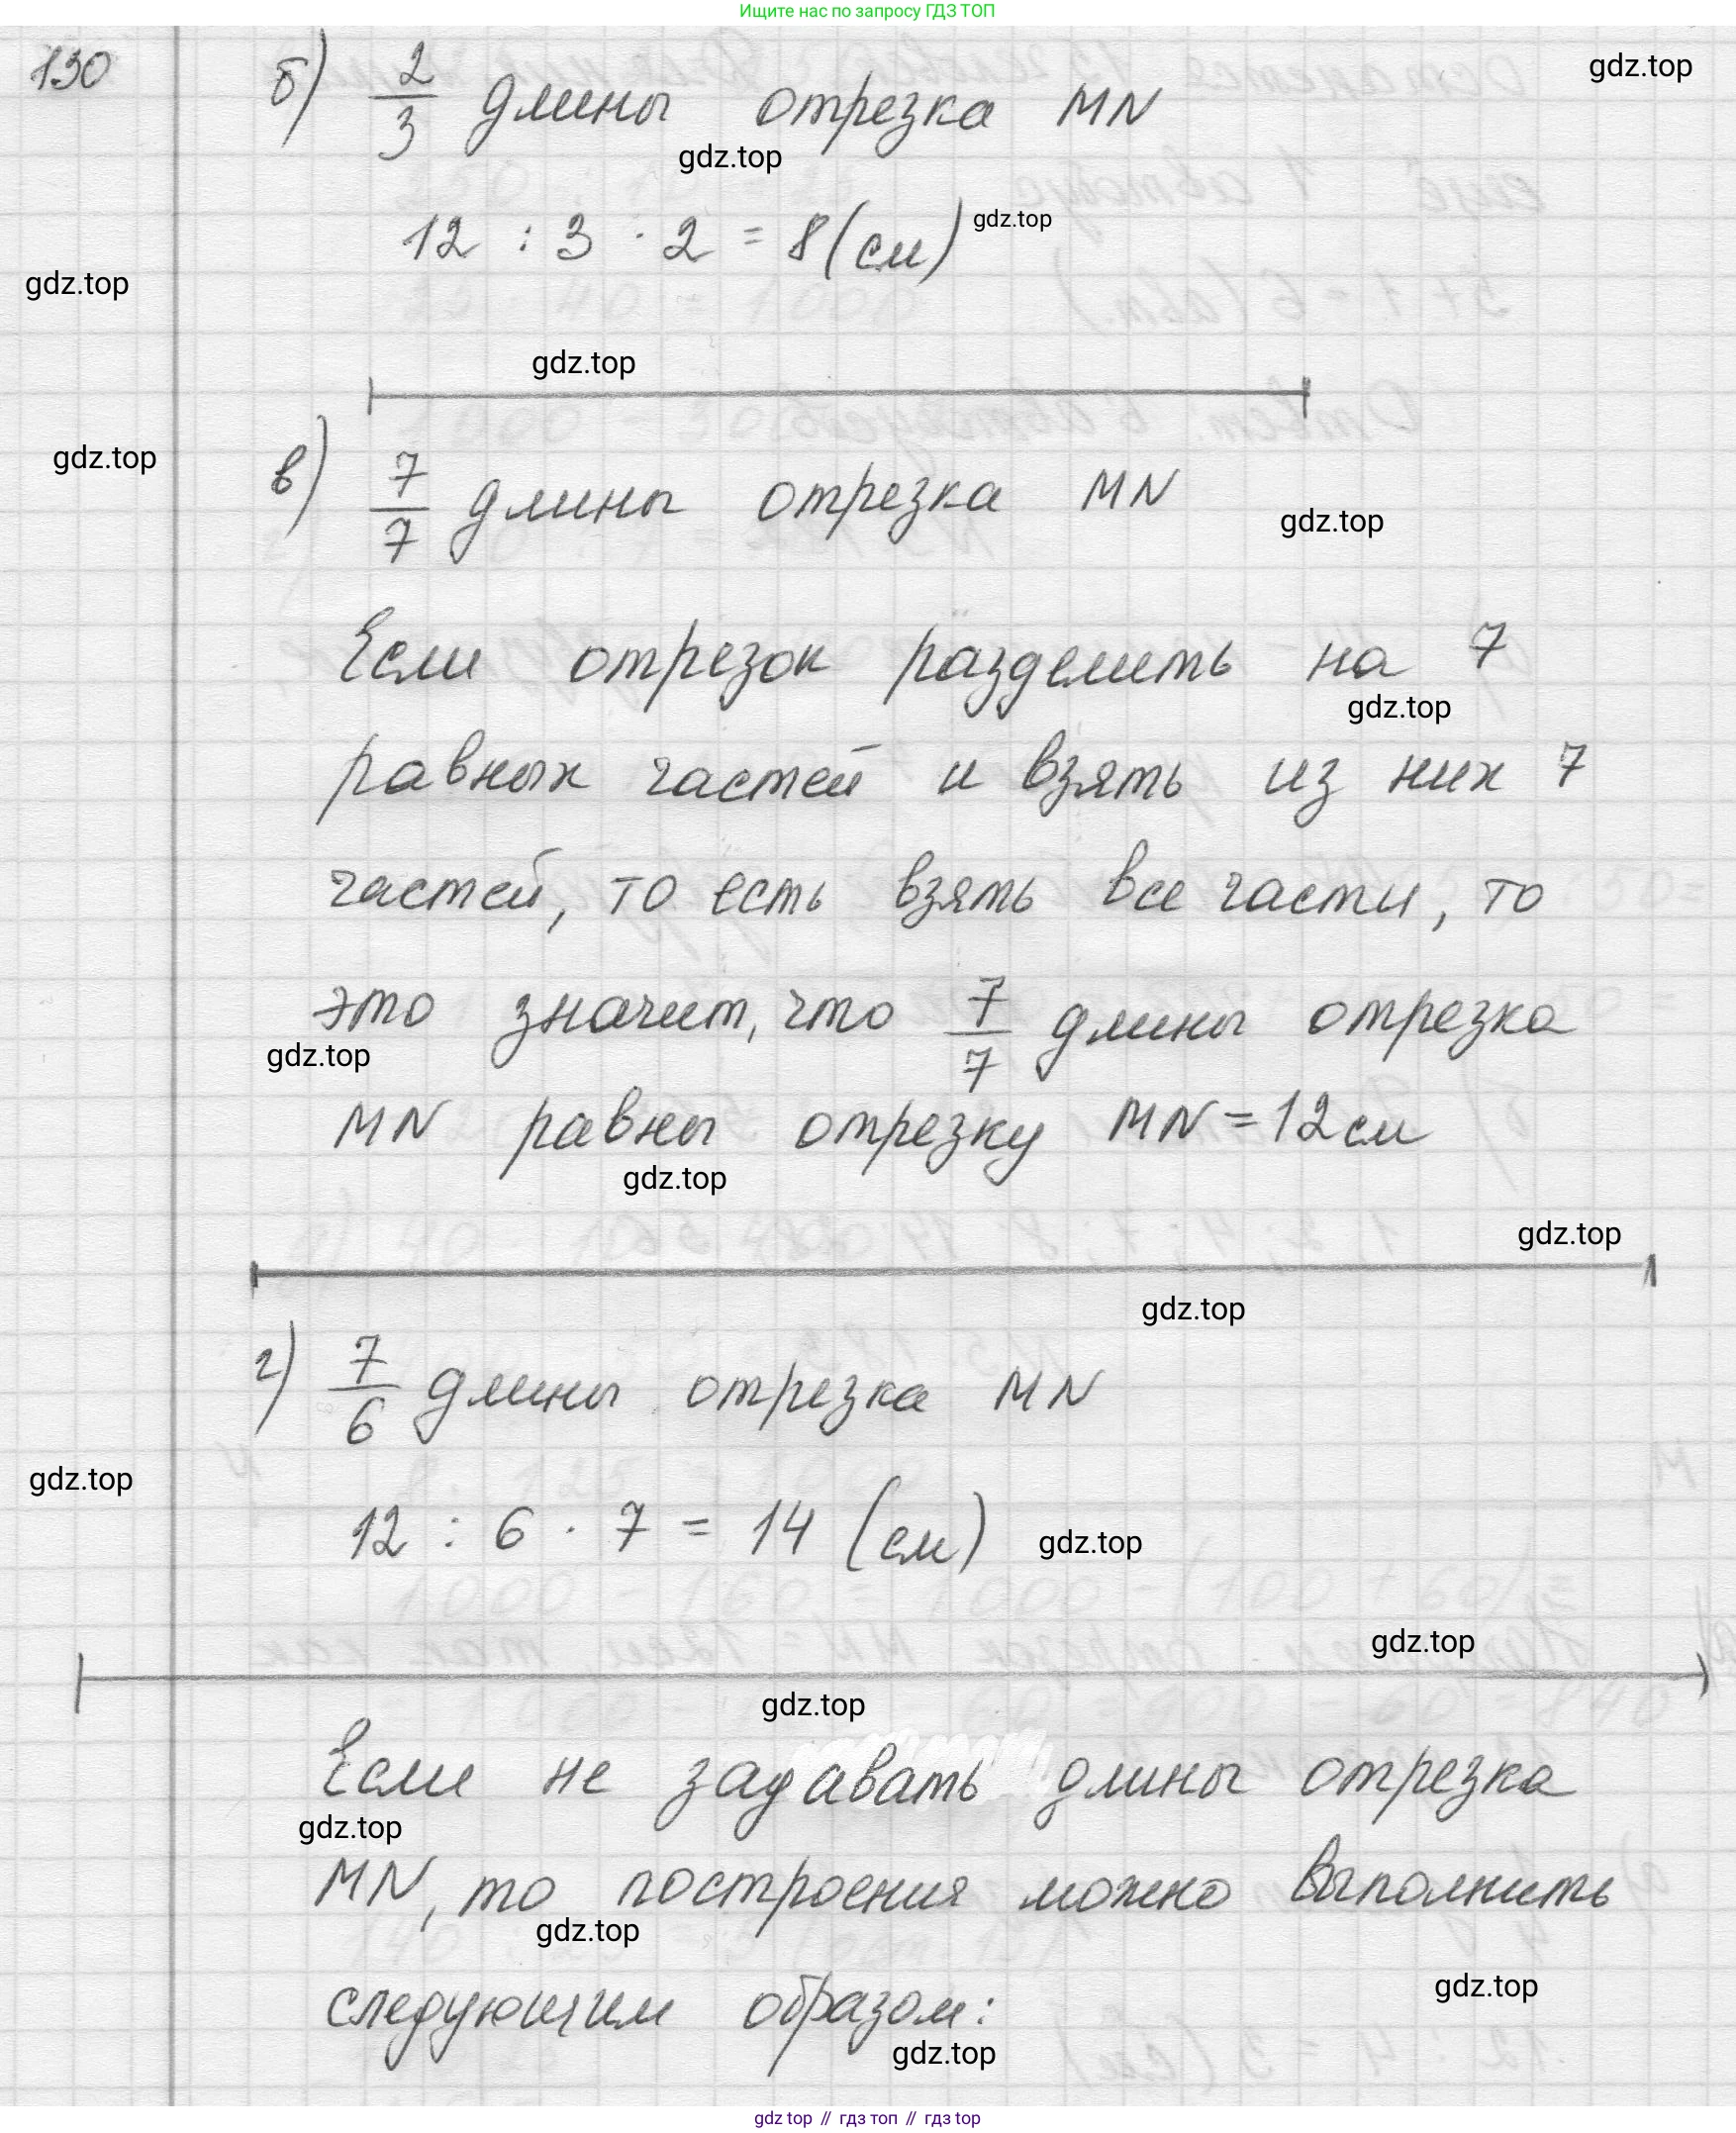 Ищите нас по запросу ГДЗ ТОП
130
gdz.top
б) 2/3 длины отрезка MN
gdz.top
12 : 3 · 2 = 8 (см)
gdz.top
gdz.top
gdz.top
gdz.top
в) 7/7 длины отрезка MN
gdz.top
Если отрезок разделить на 7
gdz.top
равных частей и взять из них 7
частей, то есть взять все части, то
это значит, что 7/7 длины отрезка
gdz.top
MN равны отрезку MN = 12 см
gdz.top
gdz.top
gdz.top
г) 7/6 длины отрезка MN
gdz.top
12 : 6 · 7 = 14 (см)
gdz.top
gdz.top
gdz.top
Если не задавать длины отрезка
gdz.top
MN, то построения можно выполнить
gdz.top
gdz.top
следующим образом:
gdz.top
gdz top // гдз топ // гдз top